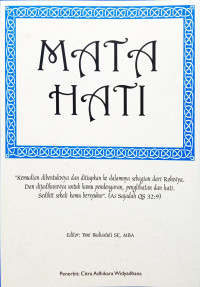 MATA
HATI
"Kemudian dibentuknya dan ditiupkan ke dalamnya sebagian dari Rohnya.
Dan dijadikannya untuk kamu pendengaran, penglihatan dan hati.
Sedikit sekali kamu bersyukur". (As Sajadah QS 32:9)
Editor: SE, MBA
Penerbit: Citra Adhikara Widyadhana